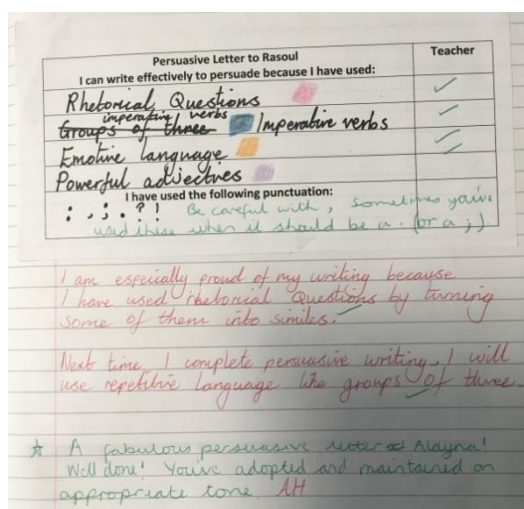 Persuasive Letter to Rasoul
Teacher
I can write effectively to persuade because I have used:
Rhetorical Questions
imperative verbs
Groups of three Imperative verbs
Emotive language
Powerful adjectives
I have used the following punctuation:
: , ; . ? ! Be careful with , sometimes you've
used these when it should be a . (or a ;)
I am especially proud of my writing because
I have used rhetorical Questions by turning
some of them into similes.
Next time, I complete persuasive writing, I will
use repetitive language like groups of three.
A fabulous persuasive letter Alayna!
Well done! You've adopted and maintained an
appropriate tone. AH